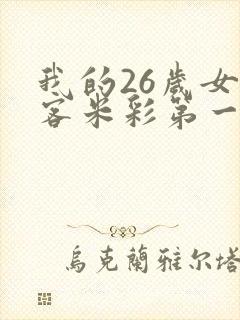 我的26歲女
客米彩第一
烏克蘭雅尔塔